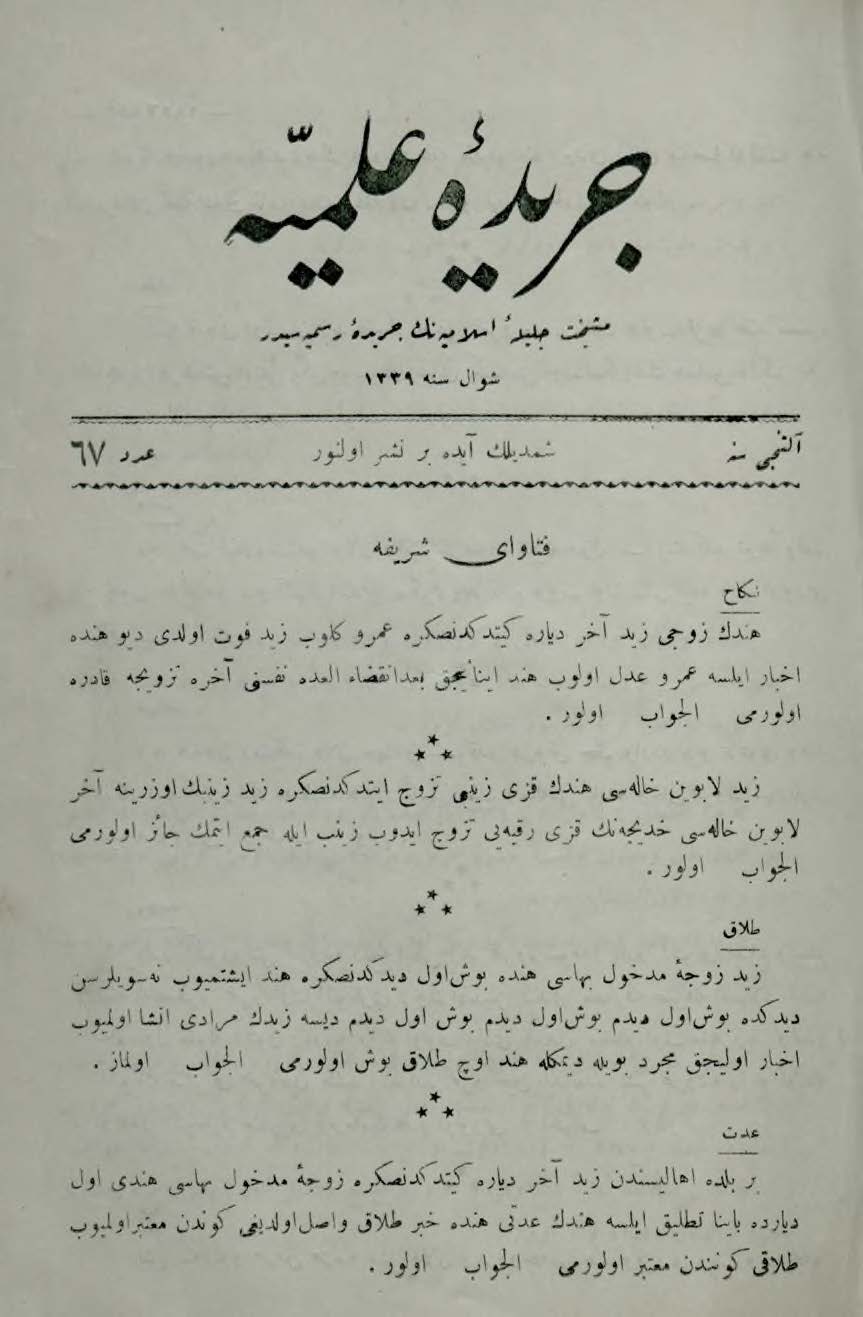 جريدهٔ علميّه
مشيخت جليلهٔ اسلاميه‌نك جريدهٔ رسميه‌سيدر
شوال سنه ١٣٣٩
آلتنجی سنه شمديلك آيده بر نشر اولنور عدد ٦٧
فتاوای شريفه
نكاح
هندك زوجی زيد آخر دياره كيتدكدنصكره عمرو كلوب زيد فوت اولدی ديو هنده
اخبار ايلسه عمرو عدل اولوب هند اينانيجق بعدانقضاء العده نفسنی آخره تزويجه قادره
اولورمی الجواب اولور .
زيد لابوين خاله‌سی هندك قزی زينبی تزوج ايتدكدنصكره زيد زينبك اوزرينه آخر
لابوين خاله‌سی خديجه‌نك قزی رقيه‌يی تزوج ايدوب زينب ايله جمع ايتمك جائز اولورمی
الجواب اولور .
طلاق
زيد زوجهٔ مدخول بهاسی هنده بوش‌اول ديدكدنصكره هند ايشتميوب نه‌سويلرسن
ديدكده بوش‌اول ديدم بوش‌اول ديدم بوش اول ديدم ديسه زيدك مرادی انشا اولميوب
اخبار اوليجق مجرد بويله ديمكله هند اوچ طلاق بوش اولورمی الجواب اولماز .
عدت
بر بلده اهاليسندن زيد آخر دياره كيتدكدنصكره زوجهٔ مدخول بهاسی هندی اول
ديارده باينا تطليق ايلسه هندك عدتی هنده خبر طلاق واصل‌اولديغی كوندن معتبراولميوب
طلاقی كونندن معتبر اولورمی الجواب اولور .